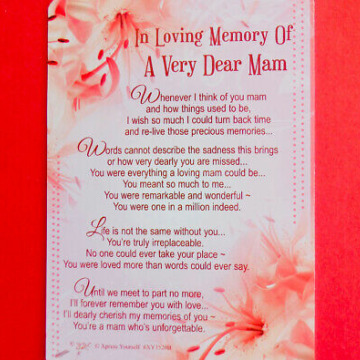 In Loving Memory Of
A Very Dear Mam
Whenever I think of you mam
and how things used to be,
I wish so much I could turn back time
and re-live those precious memories...
Words cannot describe the sadness this brings
or how very dearly you are missed...
You were everything a loving mam could be...
You meant so much to me...
You were remarkable and wonderful ~
You were one in a million indeed.
Life is not the same without you...
You're truly irreplaceable.
No one could ever take your place ~
You were loved more than words could ever say.
Until we meet to part no more,
I'll forever remember you with love...
I'll dearly cherish my memories of you ~
You're a mam who's unforgettable.
© Xpress Yourself